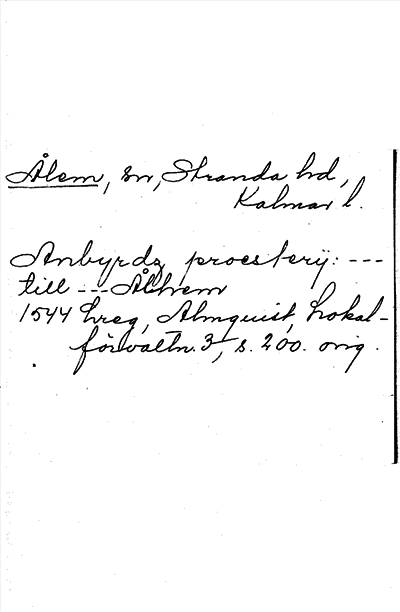 Ålem, sn, Stranda hd,
Kalmar l.
Anbyrdz proesterij: ---
till --- Ålhem
1544 hreg, Almquist, Lokal-
förvaltn. 3, s. 200. orig.